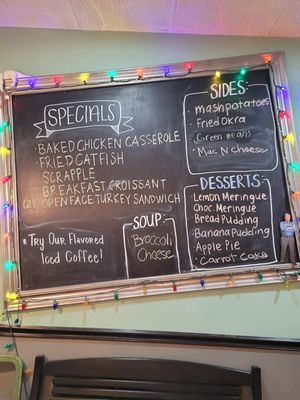 SPECIALS
· BAKED CHICKEN CASSEROLE
· FRIED CATFISH
SCRAPPLE
· BREAKFAST CROISSANT
(2) OPEN FACE TURKEY SANDWICH
* TRY OUR FLAVORED
ICED COFFEE!
SOUP:
Broccoli
Cheese
SIDES:
· mashpotatoes
· Fried Okra
· Green Beans
· Mac N Cheese
DESSERTS:
· Lemon Meringue
· Choc Meringue
· Bread Pudding
· Banana Pudding
· Apple Pie
· Carrot Cake